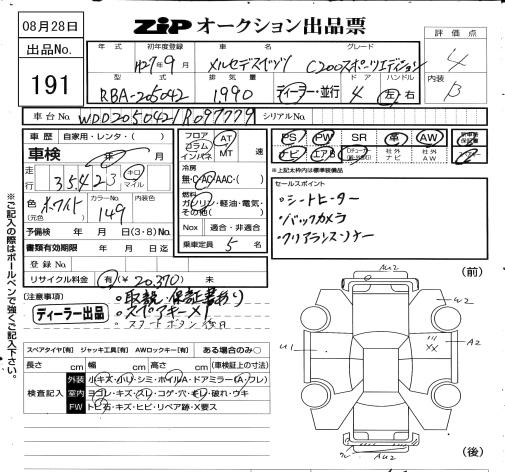 08月28日
ZIP オークション出品票
出品No.
191
年式 初年度登録 車名 グレード
H27年9月 メルセデスベンツ C200スポーツエディション
型式 排気量 ドア ハンドル
RBA-205042 1990 ディーラー・並行 4 左 右
評価点
4
内装
B
車台No. WDD2050421R097779 シリアルNo.
車歴 自家用・レンタ・( )
車検 年 月
走行 35423 キロ マイル
色 ホワイト カラーNo. 149 内装色
(元色)
予備検 年 月 日(3・8)No.
書類有効期限 年 月 日迄
登録No.
リサイクル料金 有(¥20,370) 未
フロア コラム インパネ AT MT 速
冷房
無・C・AC・AAC・( )
燃料
ガソリン・軽油・電気・その他( )
Nox 適合・非適合
乗車定員 5 名
PS PW SR 革 AW
ナビ エアB 社外ナビ 社外AW
※上記太枠内は標準装備品
セールスポイント
・シートヒーター
・バックカメラ
・クリアランスソナー
(注意事項)
ディーラー出品
・取説・保証書あり
・スペアキー×1
・スタートボタン
※ご記入の際はボールペンで強くご記入下さい。
スペアタイヤ[有] ジャッキ工具[有] AWロックキー[有] ある場合のみ○
長さ cm 幅 cm 高さ cm (車検証上の寸法)
検査記入
外装 小キズ・小リ・シミ・ホイルA・ドアミラー(A・フレ)
室内 ヨゴレ・キズ・スレ・コゲ・穴・キレ・破れ・ウキ
FW トビ石・キズ・ヒビ・リペア跡・X要ス
(前)
AU2
W2
U1
XX
A2
AU2
(後)